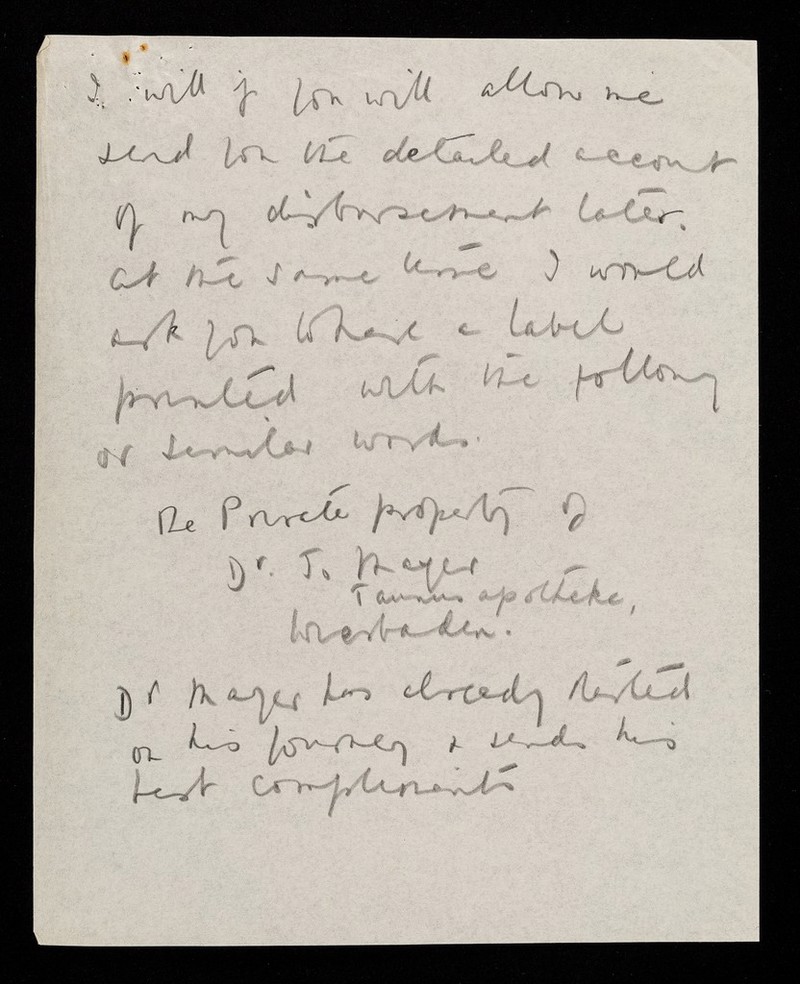 I will if you will allow me
send you the detailed account
of my disbursement later.
At the same time I would
ask you to have a label
printed with the following
or similar words.
The Private property of
Dr. J. Mayer
Taunusapotheke,
Wiesbaden.
Dr Mayer has already started
on his journey & sends his
best compliments